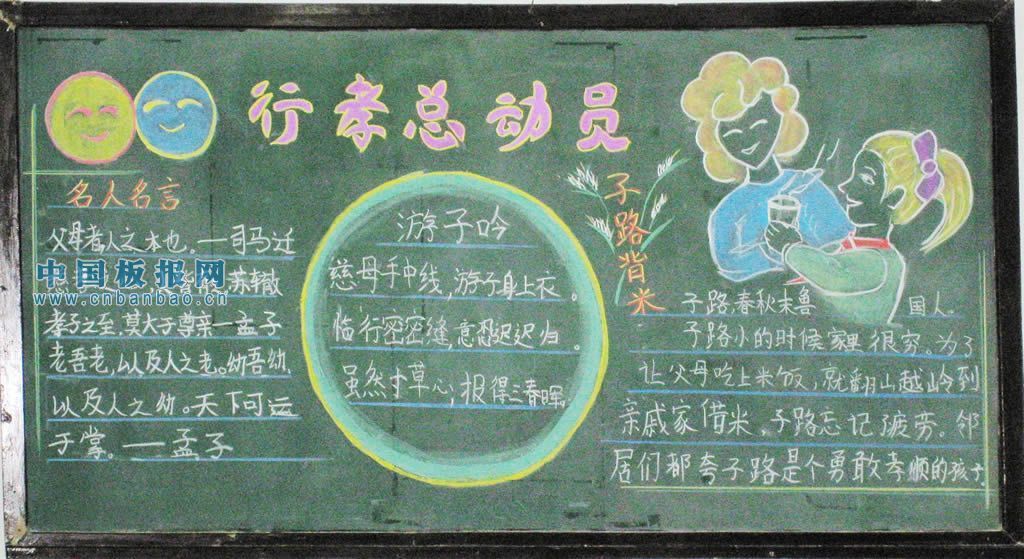 行孝总动员
名人名言
父母者人之本也。—司马迁
中国板报网
www.cnbanbao.cn
苏辙
孝子之至,莫大于尊亲—孟子
老吾老,以及人之老。幼吾幼,
以及人之幼。天下可运
于掌。—孟子
游子吟
慈母手中线,游子身上衣。
临行密密缝,意恐迟迟归。
虽然寸草心,报得三春晖。
子路背米
子路,春秋末鲁 国人。
子路小的时候家里很穷。为了
让父母吃上米饭,就翻山越岭到
亲戚家借米,子路忘记了疲劳。邻
居们都夸子路是个勇敢孝顺的孩子